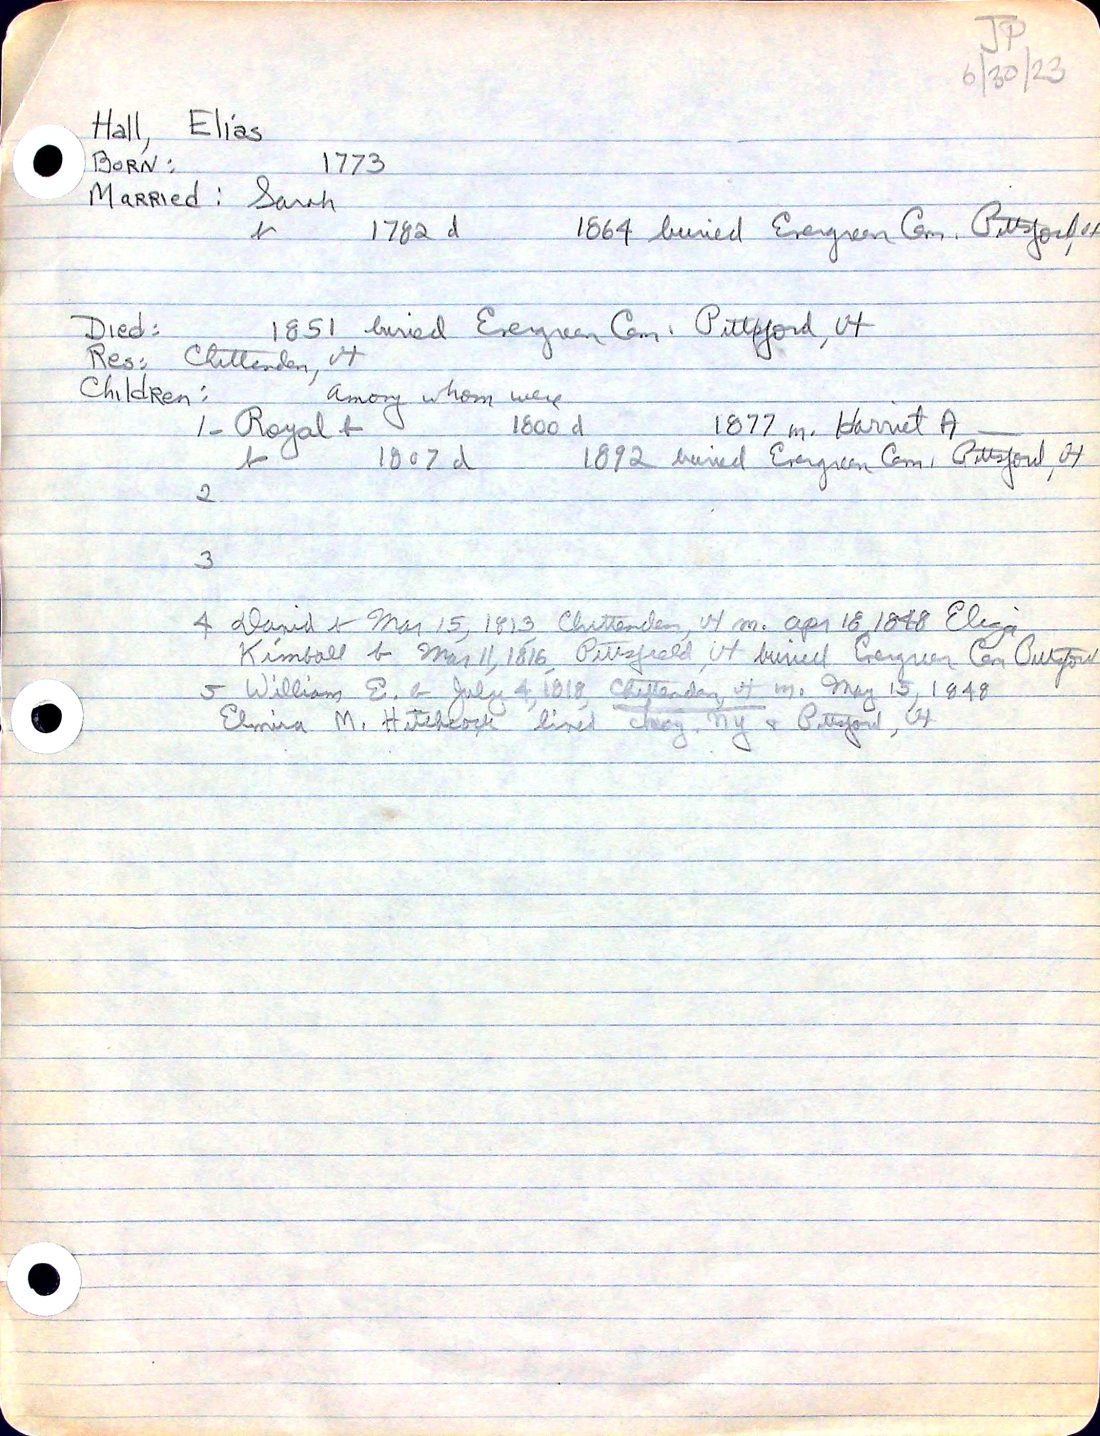 JP
6/30/23
Hall, Elias
BORN: 1773
MARRIed: Sarah
b 1782 d 1864 buried Evergreen Cem. Pittsford, Vt
Died: 1851 buried Evergreen Cem. Pittsford, Vt
Res: Chittenden, Vt
ChildRen: among whom were
1- Royal b 1800 d 1877 m. Harriet A ___
b 1807 d 1892 buried Evergreen Cem. Pittsford, Vt
2
3
4 David b Mar 15, 1813 Chittenden, Vt m. Apr 18, 1848 Eliza
Kimball b Mar 11, 1816, Pittsfield, Vt buried Evergreen Cem Pittsford
5 William E. b July 4, 1818, Chittenden, Vt m. May 15, 1848
Elmira M. Hitchcock lived NY & Pittsford, Vt